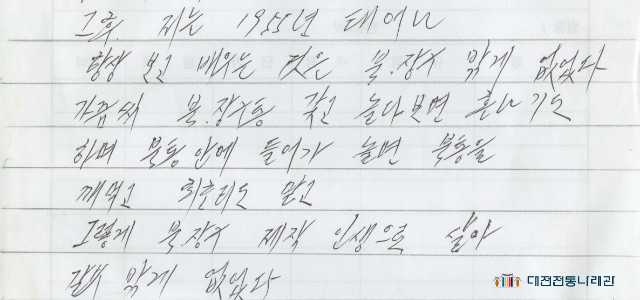 그후. 저는 1955년 태어나
항상 보고 배우는 것은 북.장구 밖게 없었다
가끔씩 북.장구통 갖고 놀다보면 혼나기도
하며 북통안에 들어가 놀면 북통을
깨먹고 회초리도 맞고
그렇게 북.장구 제작 인생으로 살아
밖게 없었다
대전전통나래관